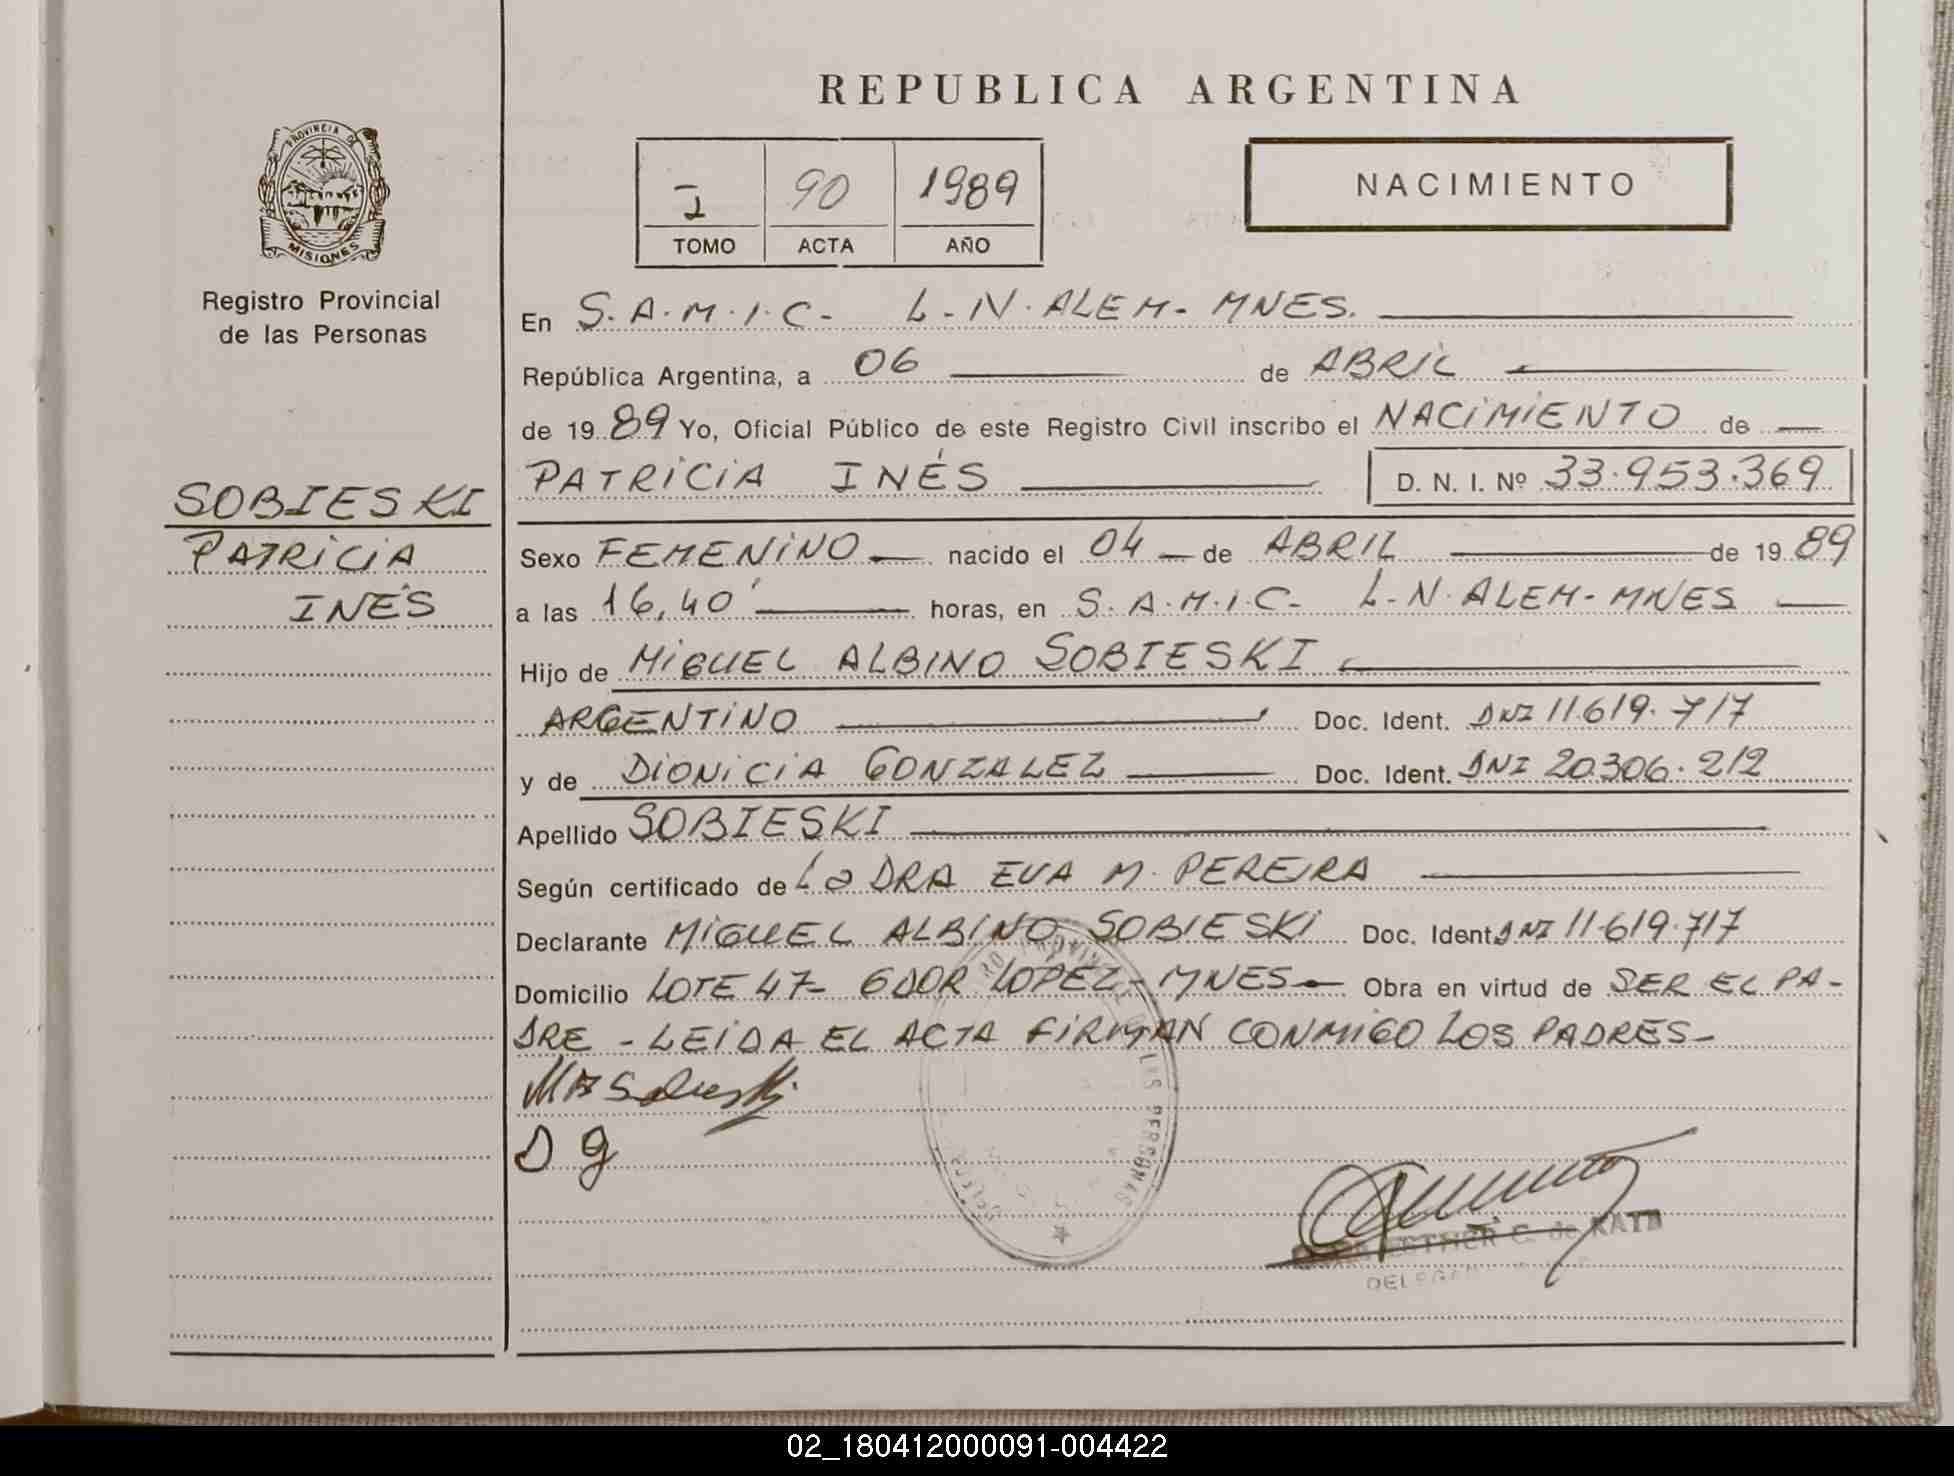 REPUBLICA ARGENTINA
PROVINCIA DE
MISIONES
Registro Provincial
de las Personas
I 90 1989
TOMO ACTA AÑO
NACIMIENTO
En S.A.M.I.C- L-N.ALEM-MNES.
República Argentina, a 06 de ABRIL
de 1989 Yo, Oficial Público de este Registro Civil inscribo el NACIMIENTO de
PATRICIA INÉS D. N. I. Nº 33.953.369
SOBIESKI
PATRICIA
INÉS
Sexo FEMENINO nacido el 04 de ABRIL de 1989
a las 16,40' horas, en S.A.M.I.C- L-N.ALEM-MNES
Hijo de MIGUEL ALBINO SOBIESKI
ARGENTINO Doc. Ident. DNI 11.619.717
y de DIONICIA GONZALEZ Doc. Ident. DNI 20.306.212
Apellido SOBIESKI
Según certificado de La DRA EVA M. PEREIRA
Declarante MIGUEL ALBINO SOBIESKI Doc. Ident. DNI 11.619.717
Domicilio LOTE 47- GDOR LOPEZ-MNES- Obra en virtud de SER EL PA-
DRE - LEIDA EL ACTA FIRMAN CONMIGO LOS PADRES-
D g
LAS PERSONAS
C. de
02_180412000091-004422